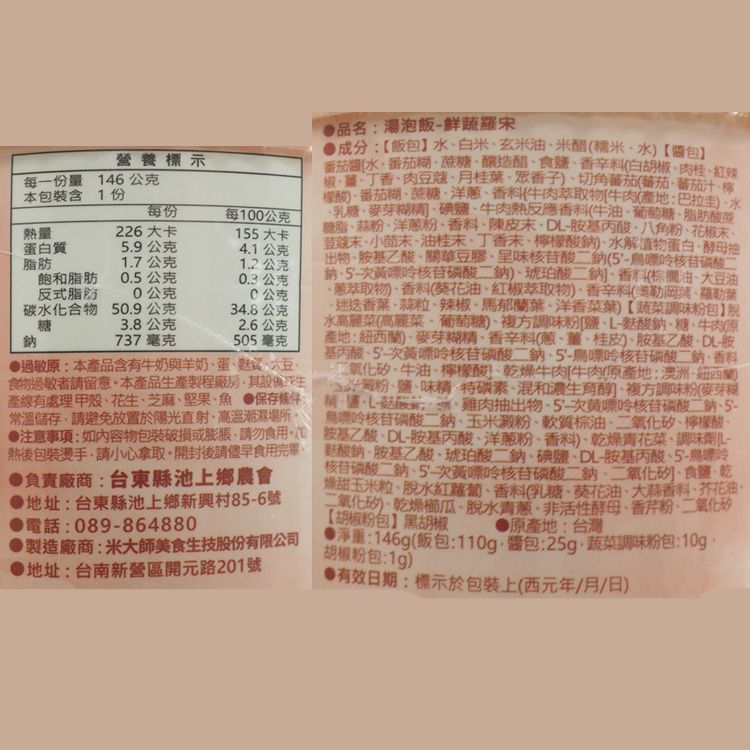 營養標示
每一份量 146 公克
本包裝含 1 份
每份 每100公克
熱量 226 大卡 155 大卡
蛋白質 5.9 公克 4.1 公克
脂肪 1.7 公克 1.2 公克
飽和脂肪 0.5 公克 0.3 公克
反式脂肪 0 公克 0 公克
碳水化合物 50.9 公克 34.8 公克
糖 3.8 公克 2.6 公克
鈉 737 毫克 505 毫克
●過敏原:本產品含有牛奶與羊奶、蛋、麩質、大豆,
食物過敏者請留意。本產品生產製程廠房,其設備或生
產線有處理 甲殼、花生、芝麻、堅果、魚 ●保存條件:
常溫儲存,請避免放置於陽光直射、高溫潮濕場所
●注意事項:如內容物包裝破損或膨脹,請勿食用,加
熱後包裝燙手,請小心拿取,開封後請儘早食用完畢
●負責廠商:台東縣池上鄉農會
●地址:台東縣池上鄉新興村85-6號
●電話:089-864880
●製造廠商:米大師美食生技股份有限公司
●地址:台南新營區開元路201號
●品名:湯泡飯-鮮蔬羅宋
●成分:【飯包】水、白米、玄米油、米醋(糯米、水)【醬包】
番茄醬[水、番茄糊、蔗糖、釀造醋、食鹽、香辛料(白胡椒、肉桂、紅辣
椒、薑、丁香、肉豆蔻、月桂葉、眾香子)、切角番茄(番茄、番茄汁、檸
檬酸)、番茄糊、蔗糖、洋蔥、香料{牛肉萃取物[牛肉(產地:巴拉圭)、水
、乳糖、麥芽糊精]、碘鹽、牛肉熱反應香料(牛油、葡萄糖、脂肪酸蔗
糖脂、蒜粉、洋蔥粉、香料、陳皮末、DL-胺基丙酸、八角粉、花椒末、
荳蔻末、小茴末、油桂末、丁香末、檸檬酸鈉)、水解植物蛋白、酵母抽
出物、胺基乙酸、關華豆膠、呈味核苷酸二鈉(5'-鳥嘌呤核苷磷酸二
鈉、5'-次黃嘌呤核苷磷酸二鈉)、琥珀酸二鈉}、香料(棕櫚油、大豆油
、蔥萃取物)、香料(葵花油、紅椒萃取物)、香辛料(奧勒岡葉、羅勒葉
、迷迭香葉、蒜粒、辣椒、馬郁蘭葉、洋香菜葉)【蔬菜調味粉包】脫
水高麗菜(高麗菜、葡萄糖)、複方調味粉[鹽、L-麩酸鈉、糖、牛肉(原
產地:紐西蘭)、麥芽糊精、香辛料(蔥、薑、桂皮)、胺基乙酸、DL-胺
基丙酸、5'-次黃嘌呤核苷磷酸二鈉、5'-鳥嘌呤核苷磷酸二鈉、香料
、二氧化矽、牛油、檸檬酸]、乾燥牛肉[牛肉(原產地:澳洲、紐西蘭)
、玉米澱粉、鹽、味精、特磷素、混和濃生育醇]、複方調味粉(麥芽糊
精、鹽、L-麩酸鈉、糖、雞肉抽出物、5'-次黃嘌呤核苷磷酸二鈉、5'-
鳥嘌呤核苷磷酸二鈉、玉米澱粉、軟質棕油、二氧化矽、檸檬酸、
胺基乙酸、DL-胺基丙酸、洋蔥粉、香料)、乾燥青花菜、調味劑[L-
麩酸鈉、胺基乙酸、琥珀酸二鈉、碘鹽、DL-胺基丙酸、5'-鳥嘌呤
核苷磷酸二鈉、5'-次黃嘌呤核苷磷酸二鈉、二氧化矽]、食鹽、乾
燥甜玉米粒、脫水紅蘿蔔、香料(乳糖、葵花油、大蒜香料、芥花油、
二氧化矽)、乾燥櫛瓜、脫水青蔥、非活性酵母、香芹粉、二氧化矽
【胡椒粉包】黑胡椒 ●原產地:台灣
●淨重:146g(飯包:110g、醬包:25g、蔬菜調味粉包:10g、
胡椒粉包:1g)
●有效日期:標示於包裝上(西元年/月/日)